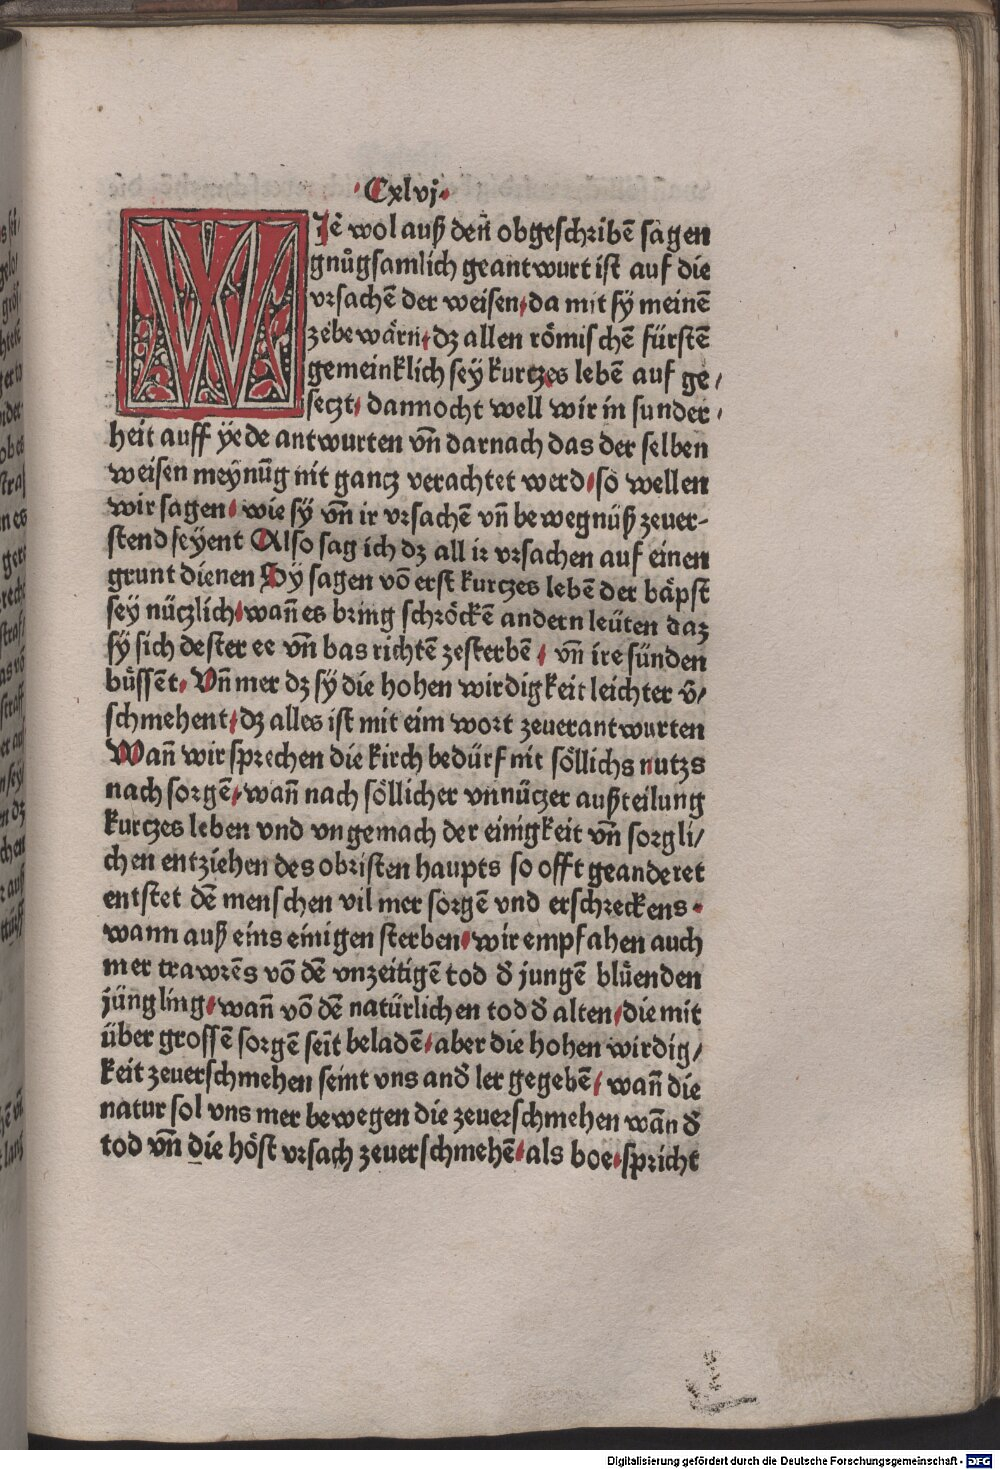 ·Cxlvj·
WJe wol auß den obgeschribē sagen
gnůgsamlich geantwurt ist auf die
vrsachē der weisen, da mit sÿ meinē
zebewärn, dz allen römischē fürstē
gemeinklich seÿ kurtzes lebē auf ge/
seczt, dannocht well wir in sunder/
heit auff ÿede antwurten vn̄ darnach das der selben
weisen meynūg nit gancz verachtet werd, so wellen
wir sagen, wie sÿ vn̄ ir vrsachē vn̄ bewegnüß zeuer-
stend seÿent Also sag ich dz all ir vrsachen auf einen
grunt dienen Sÿ sagen vō erst kurczes lebē der bäpst
sey nüczlich, wan̄ es bring schröckē andern leüten daz
sÿ sich dester ee vn̄ bas richtē zesterbē, vn̄ ire sünden
bůssēt. Vn̄ mer dz sÿ die hohen wirdigkeit leichter v̄/
schmehent, dz alles ist mit eim wort zeuerantwurten
Wan̄ wir sprechen die kirch bedürf nit söllichs nutzs
nach sorgē, wan̄ nach söllicher vnnüczer außteilung
kurczes leben vnd vngemach der einigkeit vn̄ sorgli/
chen entziehen des obristen haupts so offt geanderet
entstet dē menschen vil mer sorgē vnd erschreckens.
wann auß eins einigen sterben, wir empfahen auch
mer trawrēs vō dē vnzeitigē tod d̄ jungē blůenden
jüngling, wan̄ vō dē natürlichen tod d̄ alten, die mit
über grossē sorgē seīt beladē, aber die hohen wirdig/
keit zeuerschmehen seint vns and̄ ler gegebē, wan̄ die
natur sol vns mer bewegen die zeuerschmehen wān d̄
tod vn̄ die höst vrsach zeuerschmehē, als boe, spricht
Digitalisierung gefördert durch die Deutsche Forschungsgemeinschaft - DFG